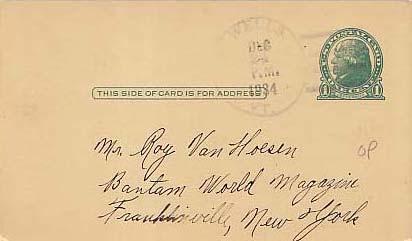 WELLS
DEC
P.M.
1934
VT.
THIS SIDE OF CARD IS FOR ADDRESS
1 1
Mr. Roy Van Hoesen
OP
Bantam World Magazine
Franklinville, New York